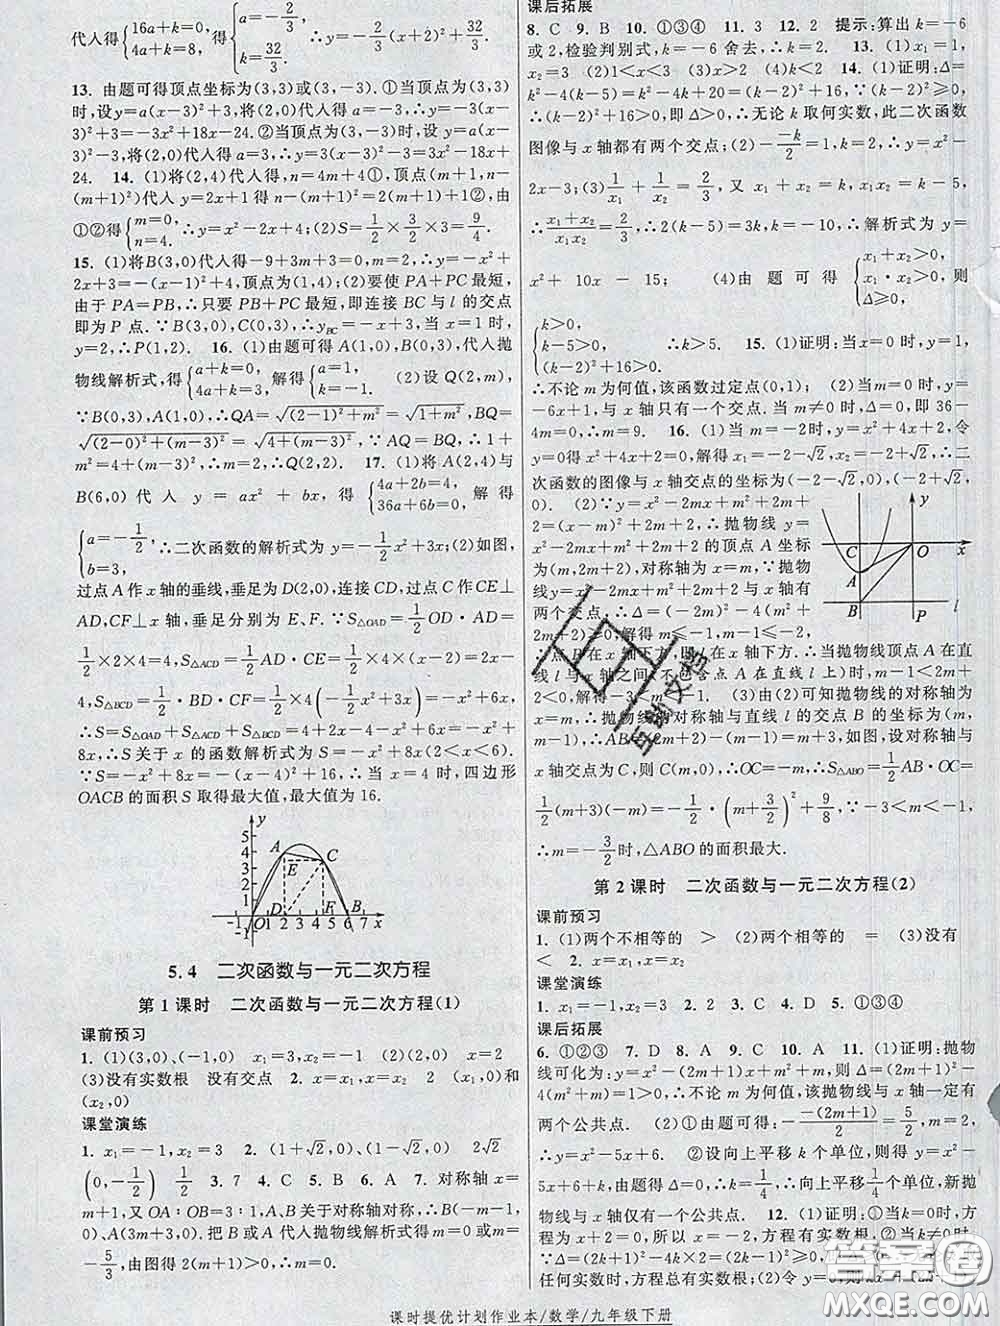 代入得{16a+k=0, 4a+k=8, 得{a=-2/3, k=32/3. ∴y=-2/3(x+2)²+32/3.
13. 由题可得顶点坐标为(3,3)或(3,-3).①当顶点为(3,3)
时,设y=a(x-3)²+3,将(2,0)代入得a=-3,∴y=-3(x-
3)²+3=-3x²+18x-24.②当顶点为(3,-3)时,设y=a(x-
3)²-3,将(2,0)代入得a=3,∴y=3(x-3)²-3=3x²-18x+
24. 14. (1)将(2,4)代入得,n=4m+4①,顶点(m+1,n-
(m+1)²)代入y=2x+1得n-(m+1)²=2(m+1)+1②,由
①②得{m=0, n=4. ∴y=x²-2x+4; (2)S=1/2×3/2×3=9/4.
15. (1)将B(3,0)代入得-9+3m+3=0,m=2,∴y=-x²+
2x+3=-(x-1)²+4,∴顶点为(1,4);(2)要使PA+PC最短,
由于PA=PB,∴只要PB+PC最短,即连接BC与l的交点
即为P点.∵B(3,0),C(0,3),∴y_BC=-x+3,当x=1时,
y=2,∴P(1,2). 16. (1)由题可得A(1,0),B(0,3),代入抛
物线解析式,得{a+k=0, 4a+k=3, 解得{a=1, k=-1. (2)设Q(2,m),
∵B(0,3),A(1,0),∴QA=√((2-1)²+m²)=√(1+m²),BQ=
√((2-0)²+(m-3)²)=√(4+(m-3)²),∵AQ=BQ,∴1+
m²=4+(m-3)²,∴m=2,∴Q(2,2). 17. (1)将A(2,4)与
B(6,0)代入y=ax²+bx,得{4a+2b=4, 36a+6b=0. 解得
{a=-1/2, b=3, ∴二次函数的解析式为y=-1/2x²+3x;(2)如图,
过点A作x轴的垂线,垂足为D(2,0),连接CD,过点C作CE⊥
AD,CF⊥x轴,垂足分别为E、F.∵S△OAD=1/2OD·AD=
1/2×2×4=4,S△ACD=1/2AD·CE=1/2×4×(x-2)=2x-
4,S△BCD=1/2·BD·CF=1/2×4×(-1/2x²+3x)=-x²+6x,
∴S=S△OAD+S△ACD+S△BCD=4+2x-4-x²+6x=-x²+
8x,∴S关于x的函数解析式为S=-x²+8x(2<x<6).
∵S=-x²+8x=-(x-4)²+16,∴当x=4时,四边形
OACB的面积S取得最大值,最大值为16.
y
5
4
3
2
1
A
E
C
D
F
B
-1 O 1 2 3 4 5 6 7 x
-1
5.4 二次函数与一元二次方程
第1课时 二次函数与一元二次方程(1)
课前预习
1. (1)(3,0)、(-1,0) x₁=3,x₂=-1 (2)(2,0) x=2
(3)没有实数根 没有交点 2. x₁=x₂ 2 (x₁,0)和
(x₂,0)
课堂演练
1. x₁=-1,x₂=3 2. (1+√2,0)、(1-√2,0) 2√2
(0,-1/2) 1/2 3. 7 4. C 5. B 6. A 7. ∵对称轴x=
m+1,又OA∶OB=3∶1,A、B关于对称轴对称,∴B(-m-
1,0)、A(3m+3,0).把B或A代入抛物线解析式得m=0或m=
-5/3,由图得2(m+1)>0,∴m=0.
课后拓展
8. C 9. B 10. ①③④ 11. 3 12. 2 提示:算出k=-6
或2,检验判别式,k=-6舍去,∴k=2. 13. (1)x₁=1,
x₂=3 (2)1<x<3 (3)x>2 (4)k<2 14. (1)证明:Δ=
k²-4(k-5)=k²-4k+20=(k-2)²+16,∵(k-2)²≥0,
∴(k-2)²+16>0,即Δ>0,∴无论k取何实数,此二次函数
图像与x轴都有两个交点;(2)-(-k)/2=1,k=2,∴y=x²-
2x-3;(3)1/x₁+1/x₂=2/3,又x₁+x₂=k,x₁x₂=k-5,
∴(x₁+x₂)/(x₁x₂)=2/3,∴2(k-5)=3k,k=-10,∴解析式为y=
x²+10x-15; (4)由题可得{x₁+x₂>0, x₁·x₂>0, Δ≥0, 则
{k>0, k-5>0, (k-2)²+16>0, ∴k>5. 15. (1)证明:当x=0时,y=1,
∴不论m为何值,该函数过定点(0,1); (2)当m=0时,y=
-6x+1,与x轴只有一个交点.当m≠0时,Δ=0,即36-
4m=0,∴m=9. 16. (1)当m=-2时,y=x²+4x+2,令
y=0得x²+4x+2=0,解得x₁=-2-√2,x₂=-2+√2,∴二
次函数的图像与x轴交点的坐标为(-2-√2,0),(-2+√2,
0). (2)∵y=x²-2mx+m²+2m+
2=(x-m)²+2m+2,∴抛物线y=
x²-2mx+m²+2m+2的顶点A坐标
为(m,2m+2),对称轴为x=m,∵抛物
线y=x²-2mx+m²+2m+2与x轴有
两个交点,∴(-2m)²-4(m²+
2m+2)≥0,解得m≤-1,
∴点B在x轴下方,即l在x轴下方.∴当抛物线顶点A在直
线l与x轴之间(不包含点A在直线l上)时,-m-1<2m+
2<0,解得-3<m<-1. (3)由(2)可知抛物线的对称轴为x
=m,∴抛物线的对称轴与直线l的交点B的坐标为(m,
-m-1),∴AB=2m+2-(-m-1)=3m+3,如图,设对称轴与
x轴交点为C,则C(m,0),∴OC=-m,∴S△ABO=1/2AB·OC=
y
C
O
x
A
B
P
l
∴m=-3/2时,△ABO的面积最大.
第2课时 二次函数与一元二次方程(2)
课前预习
1. (1)两个不相等的 > (2)两个相等的 = (3)没有
< 2. x=x₁,x=x₂
课堂演练
1. x₁=-1,x₂=3 2. 2 3. C 4. D 5. ①③④
课后拓展
6. ①②③ 7. D 8. A 9. C 10. A 11. (1)证明:抛物
线可化为y=x²-(2m+1)x+m²+m,∴Δ=[-(2m+
1)]²-4(m²+m)=1>0,∴不论m为何值,该抛物线与x轴一定有
两个公共点. (2)①由题可得:-(-(2m+1))/2=5/2,m=2,∴
y=x²-5x+6. ②设向上平移k个单位,则得y=x²-
5x+6+k,由题得Δ=0,∴k=1/4,∴向上平移1/4个单位,新抛
物线与x轴仅有一个公共点. 12. (1)证明:①当k=0时,方
程为x+2=0,所以x=-2,方程有实数根,②当k≠0时,
∵Δ=(2k+1)²-4k×2=(2k-1)²≥0,即Δ≥0,∴无论k取
任何实数时,方程总有实数根;
课时提优计划作业本/数学/九年级下册
答案圈
MXQE.COM